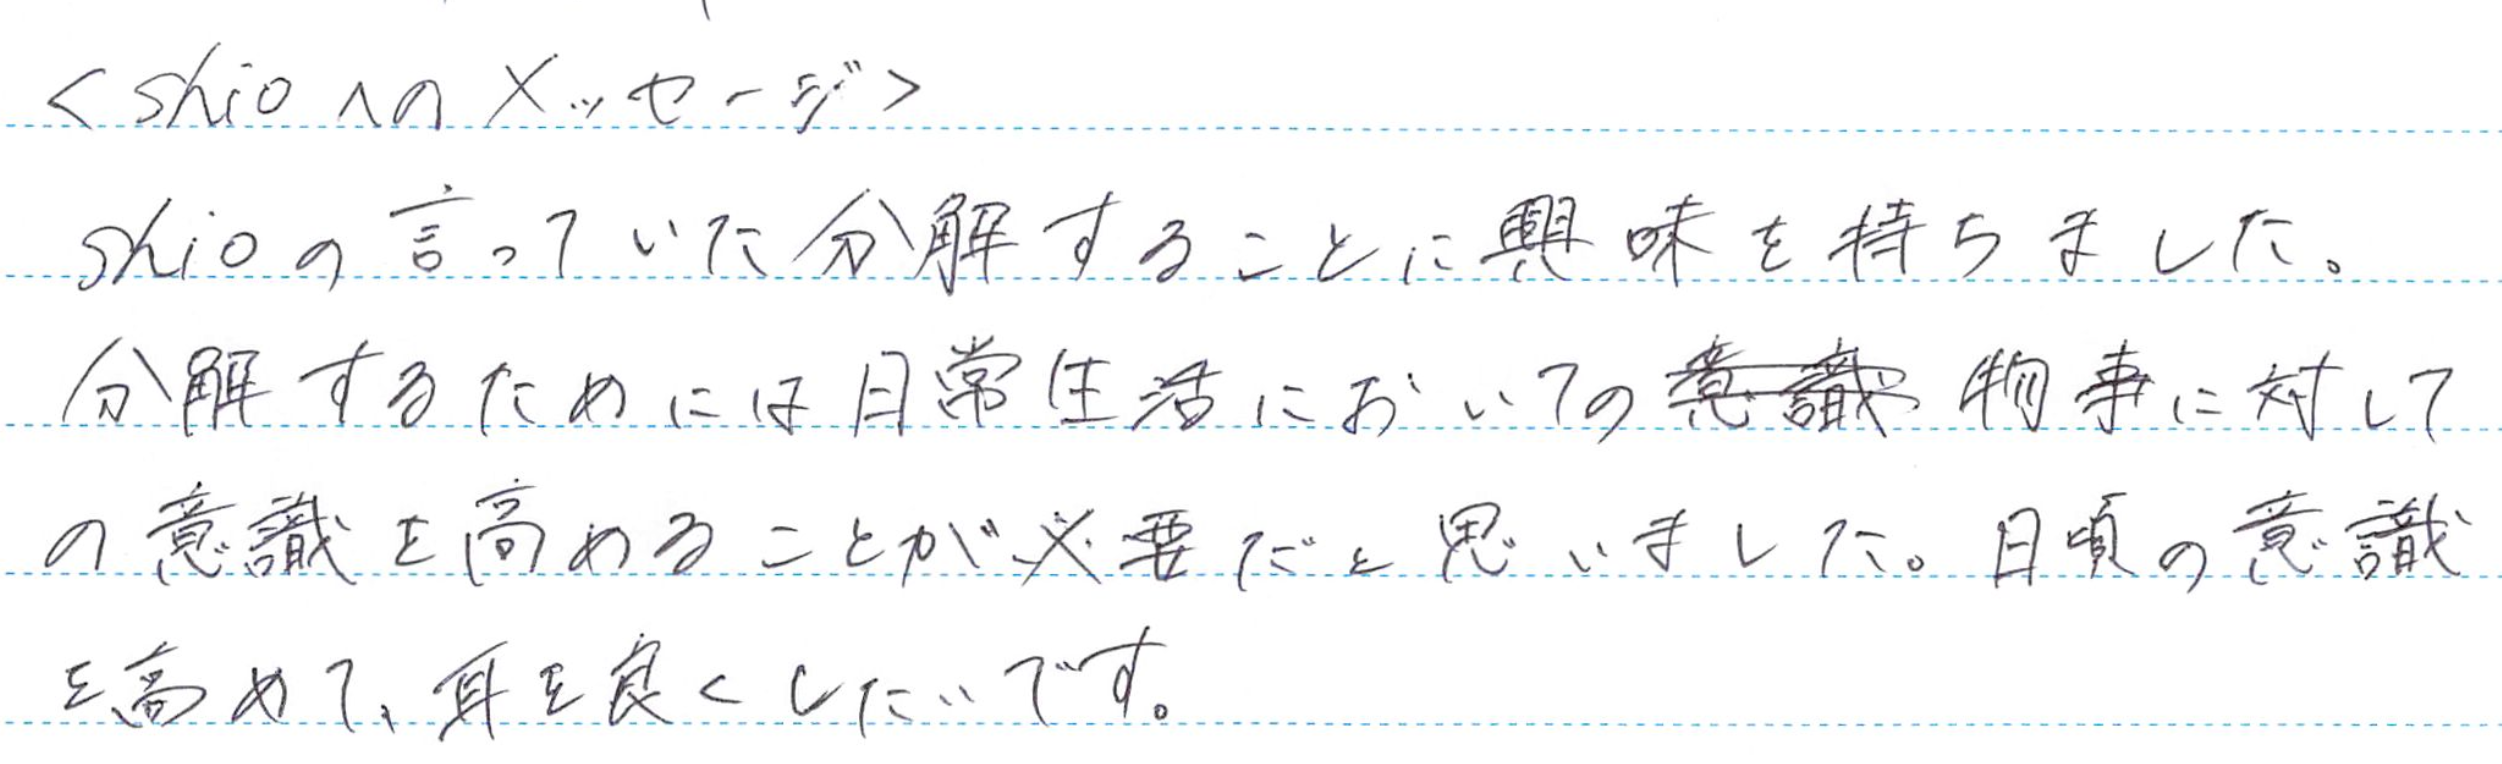 <shioへのメッセージ>
shioの言っていた分解することに興味を持ちました。
分解するためには日常生活においての意識物事に対して
の意識を高めることが必要だと思いました。日頃の意識
を高めて、耳を良くしたいです。